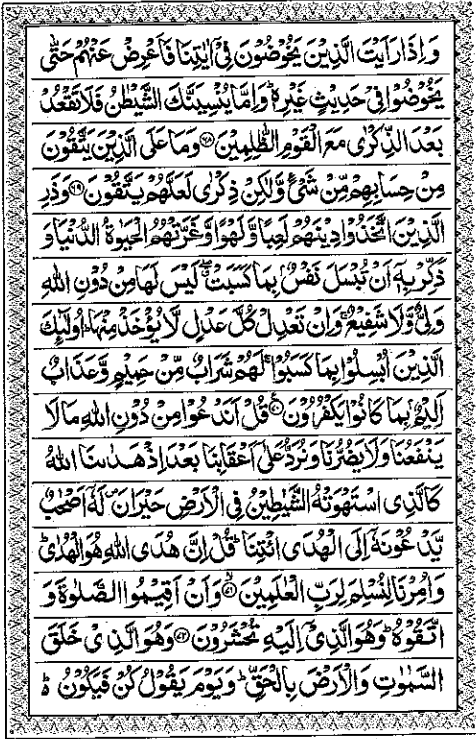 وَاِذَا رَاَيْتَ الَّذِيْنَ يَخُوْضُوْنَ فِيْٓ اٰيٰتِنَا فَاَعْرِضْ عَنْهُمْ حَتّٰى
يَخُوْضُوْا فِيْ حَدِيْثٍ غَيْرِهٖ ؕ وَاِمَّا يُنْسِيَنَّكَ الشَّيْطٰنُ فَلَا تَقْعُدْ
بَعْدَ الذِّكْرٰى مَعَ الْقَوْمِ الظّٰلِمِيْنَ ﴿۶۸﴾ وَمَا عَلَى الَّذِيْنَ يَتَّقُوْنَ
مِنْ حِسَابِهِمْ مِّنْ شَيْءٍ وَّلٰكِنْ ذِكْرٰى لَعَلَّهُمْ يَتَّقُوْنَ ﴿۶۹﴾ وَذَرِ
الَّذِيْنَ اتَّخَذُوْا دِيْنَهُمْ لَعِبًا وَّلَهْوًا وَّغَرَّتْهُمُ الْحَيٰوةُ الدُّنْيَا وَ
ذَكِّرْ بِهٖٓ اَنْ تُبْسَلَ نَفْسٌۢ بِمَا كَسَبَتْ ۖ لَيْسَ لَهَا مِنْ دُوْنِ اللّٰهِ
وَلِيٌّ وَّلَا شَفِيْعٌ ۚ وَاِنْ تَعْدِلْ كُلَّ عَدْلٍ لَّا يُؤْخَذْ مِنْهَا ؕ اُولٰٓئِكَ
الَّذِيْنَ اُبْسِلُوْا بِمَا كَسَبُوْا ۚ لَهُمْ شَرَابٌ مِّنْ حَمِيْمٍ وَّعَذَابٌ
اَلِيْمٌۢ بِمَا كَانُوْا يَكْفُرُوْنَ ﴿۷۰﴾ قُلْ اَنَدْعُوْا مِنْ دُوْنِ اللّٰهِ مَا لَا
يَنْفَعُنَا وَلَا يَضُرُّنَا وَنُرَدُّ عَلٰٓى اَعْقَابِنَا بَعْدَ اِذْ هَدٰىنَا اللّٰهُ
كَالَّذِى اسْتَهْوَتْهُ الشَّيٰطِيْنُ فِى الْاَرْضِ حَيْرَانَ ۪ لَهٗٓ اَصْحٰبٌ
يَّدْعُوْنَهٗٓ اِلَى الْهُدَى ائْتِنَا ؕ قُلْ اِنَّ هُدَى اللّٰهِ هُوَ الْهُدٰى ؕ
وَاُمِرْنَا لِنُسْلِمَ لِرَبِّ الْعٰلَمِيْنَ ﴿۷۱﴾ وَاَنْ اَقِيْمُوا الصَّلٰوةَ وَ
اتَّقُوْهُ ؕ وَهُوَ الَّذِيْٓ اِلَيْهِ تُحْشَرُوْنَ ﴿۷۲﴾ وَهُوَ الَّذِيْ خَلَقَ
السَّمٰوٰتِ وَالْاَرْضَ بِالْحَقِّ ؕ وَيَوْمَ يَقُوْلُ كُنْ فَيَكُوْنُ ؕ